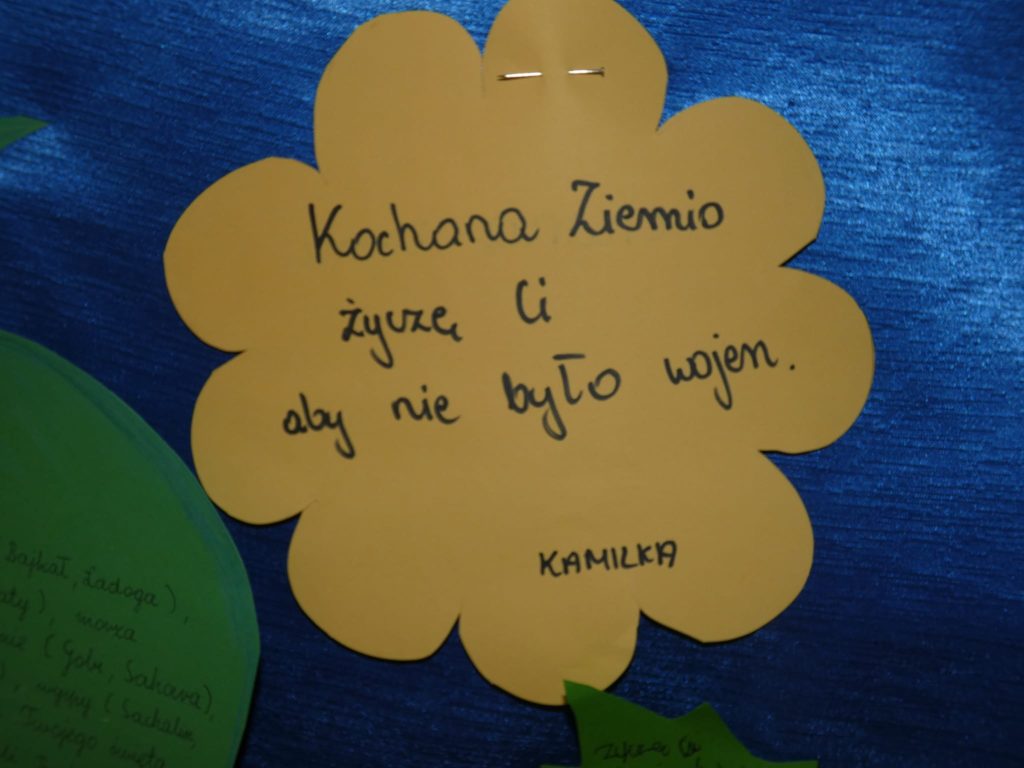 Kochana Ziemio
życzę Ci
aby nie było wojen.
KAMILKA
Bajkał, Ładoga),
morza
(Gobi, Sahara),
wyspy (Sachalin,
Twojego święta